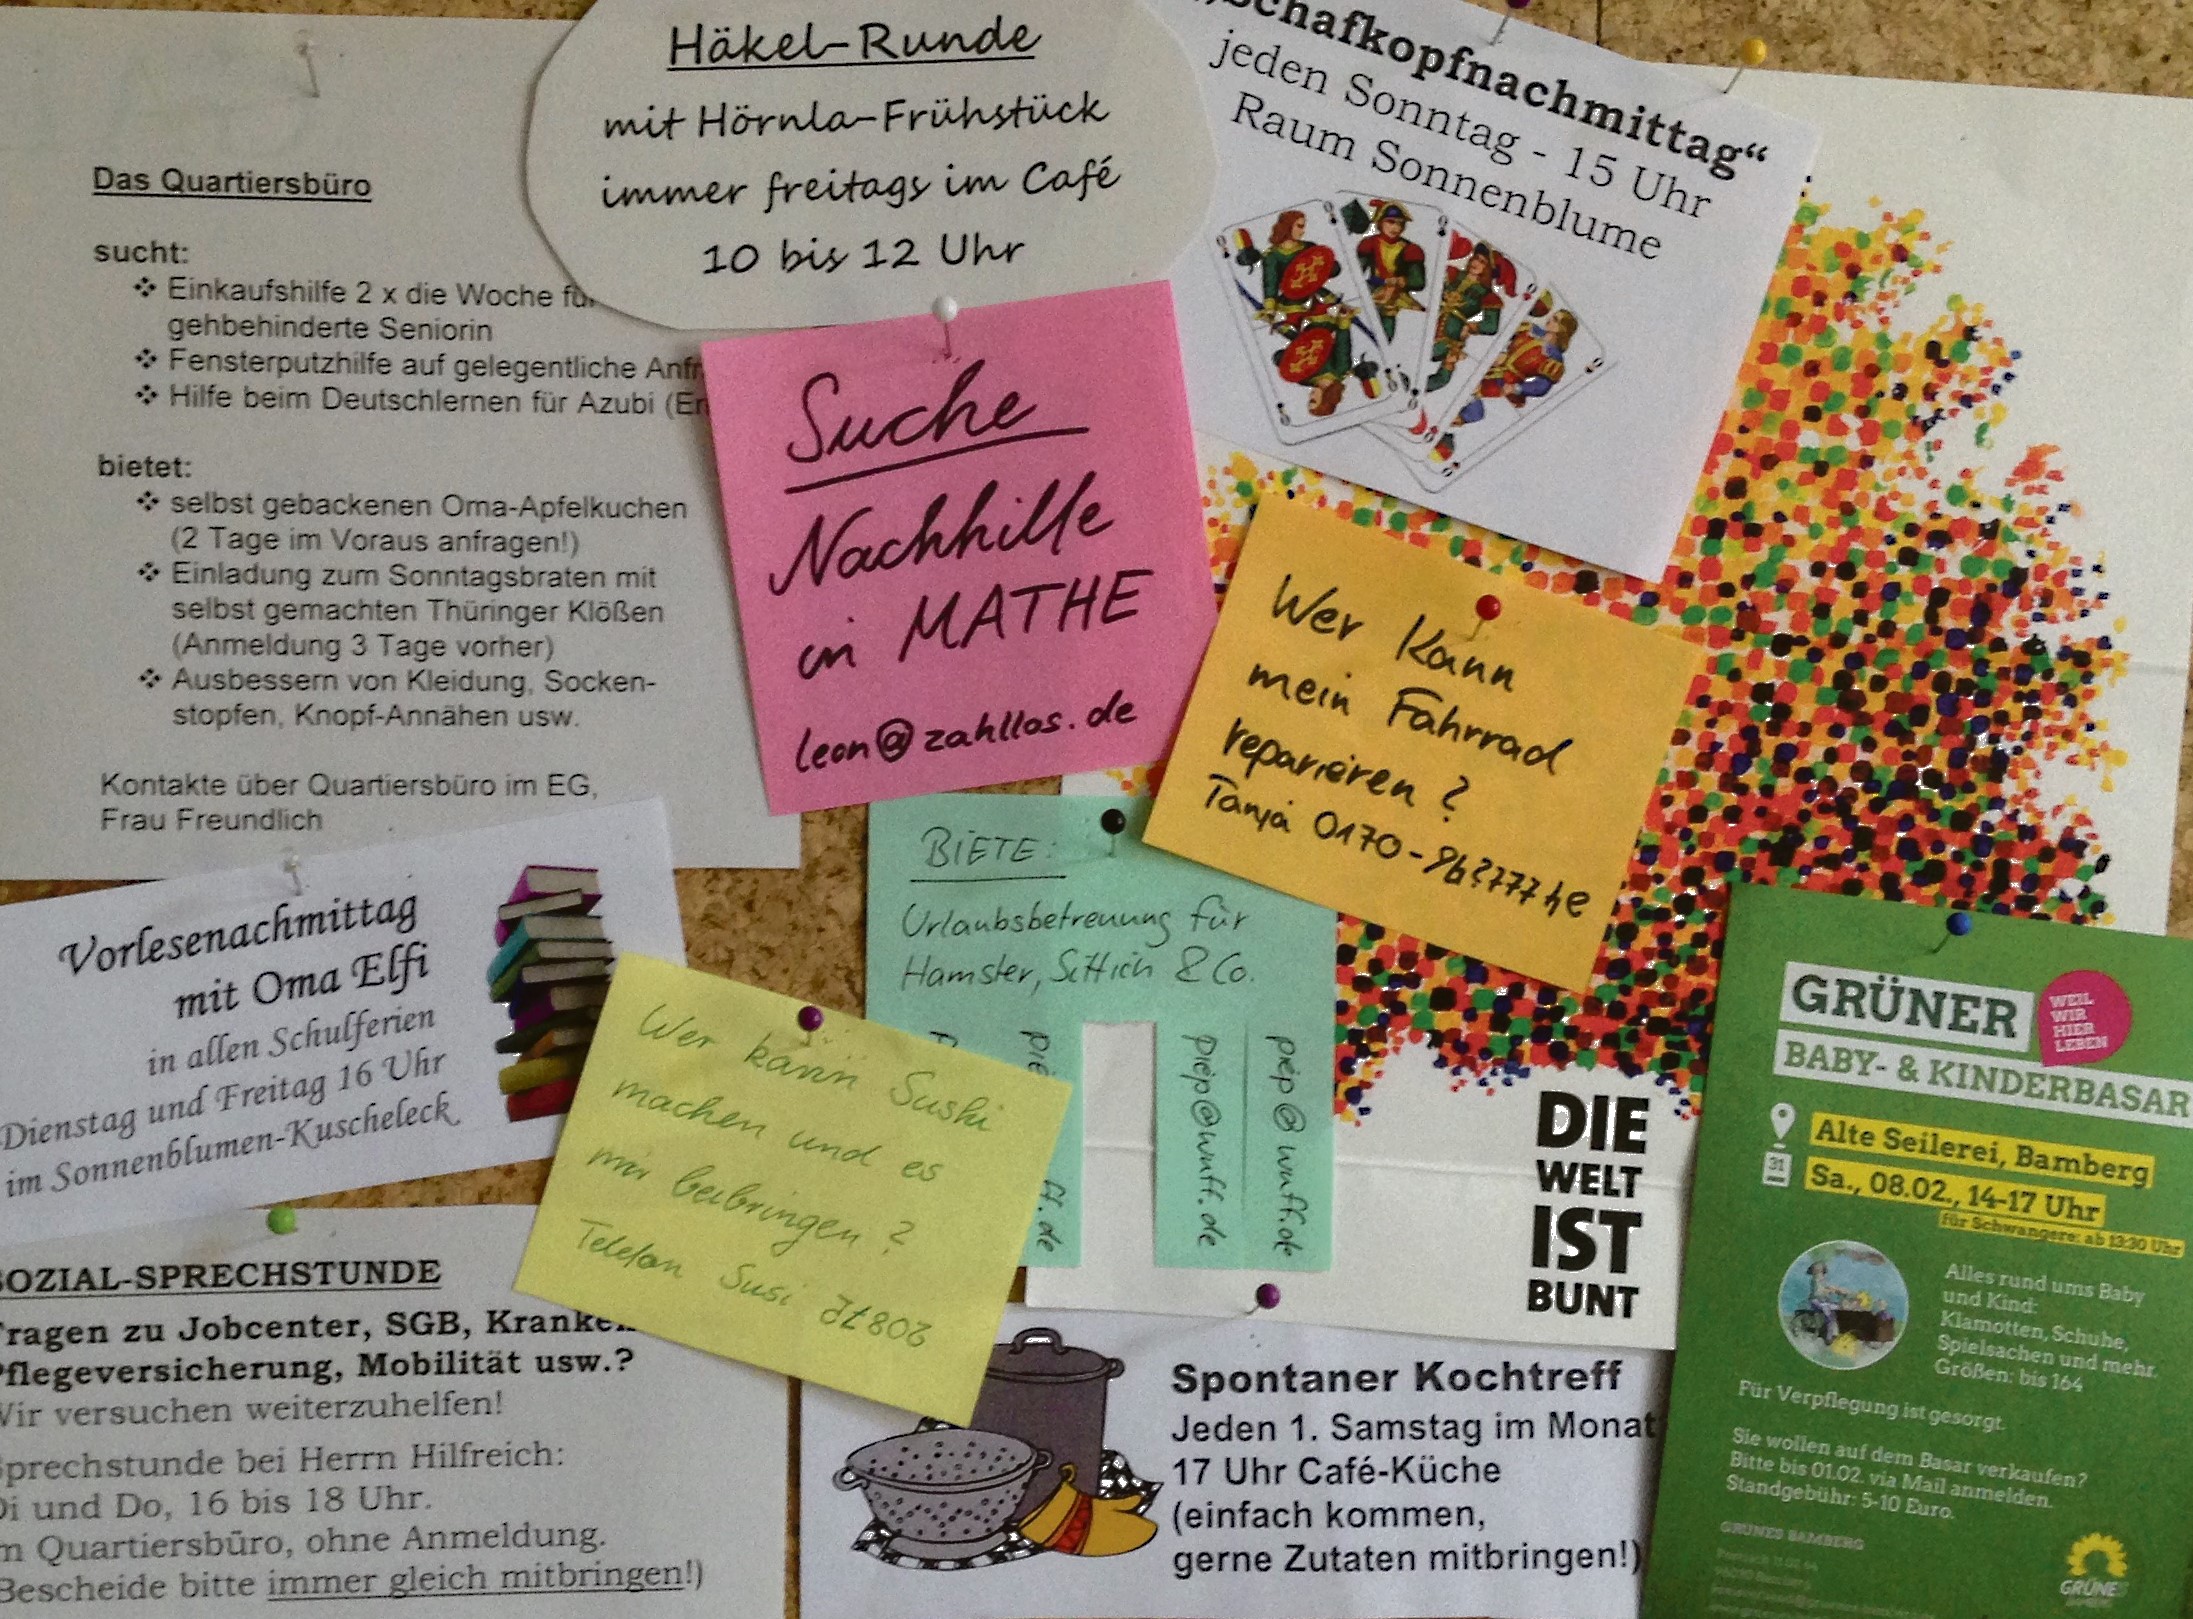 Das Quartiersbüro
sucht:
Einkaufshilfe 2 x die Woche für
gehbehinderte Seniorin
Fensterputzhilfe auf gelegentliche Anfr
Hilfe beim Deutschlernen für Azubi (En
bietet:
selbst gebackenen Oma-Apfelkuchen
(2 Tage im Voraus anfragen!)
Einladung zum Sonntagsbraten mit
selbst gemachten Thüringer Klößen
(Anmeldung 3 Tage vorher)
Ausbessern von Kleidung, Socken-
stopfen, Knopf-Annähen usw.
Kontakte über Quartiersbüro im EG,
Frau Freundlich
Häkel-Runde
mit Hörnla-Frühstück
immer freitags im Café
10 bis 12 Uhr
„Schafkopfnachmittag“
jeden Sonntag - 15 Uhr
Raum Sonnenblume
Suche
Nachhilfe
in MATHE
leon@zahllos.de
Wer kann
mein Fahrrad
reparieren?
Tanja
BIETE:
Urlaubsbetreuung für
Hamster, Sittich & Co.
piep@wuff.de
piep@wuff.de
Vorlesenachmittag
mit Oma Elfi
in allen Schulferien
Dienstag und Freitag 16 Uhr
im Sonnenblumen-Kuscheleck
Wer kann Sushi
machen und es
mir beibringen?
Telefon Susi
DIE
WELT
IST
BUNT
GRÜNER
WEIL
WIR
HIER
LEBEN
BABY- & KINDERBASAR
31
Alte Seilerei, Bamberg
Sa., 08.02., 14-17 Uhr
für Schwangere: ab 13:30 Uhr
Alles rund ums Baby
und Kind:
Klamotten, Schuhe,
Spielsachen und mehr.
Größen: bis 164
Für Verpflegung ist gesorgt.
Sie wollen auf dem Basar verkaufen?
Bitte bis 01.02. via Mail anmelden.
Standgebühr: 5-10 Euro.
GRÜNES BAMBERG
GRÜNE
SOZIAL-SPRECHSTUNDE
Fragen zu Jobcenter, SGB, Kranken
Pflegeversicherung, Mobilität usw.?
Wir versuchen weiterzuhelfen!
Sprechstunde bei Herrn Hilfreich:
Di und Do, 16 bis 18 Uhr.
Im Quartiersbüro, ohne Anmeldung.
(Bescheide bitte immer gleich mitbringen!)
Spontaner Kochtreff
Jeden 1. Samstag im Monat
17 Uhr Café-Küche
(einfach kommen,
gerne Zutaten mitbringen!)